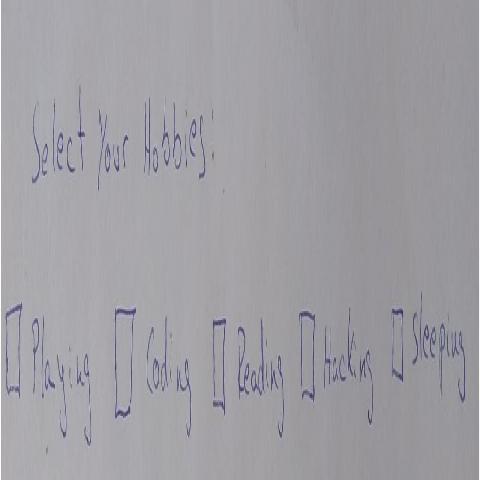 Select Your Hobbies:
☐ Playing ☐ Coding ☐ Reading ☐ Hacking ☐ Sleeping